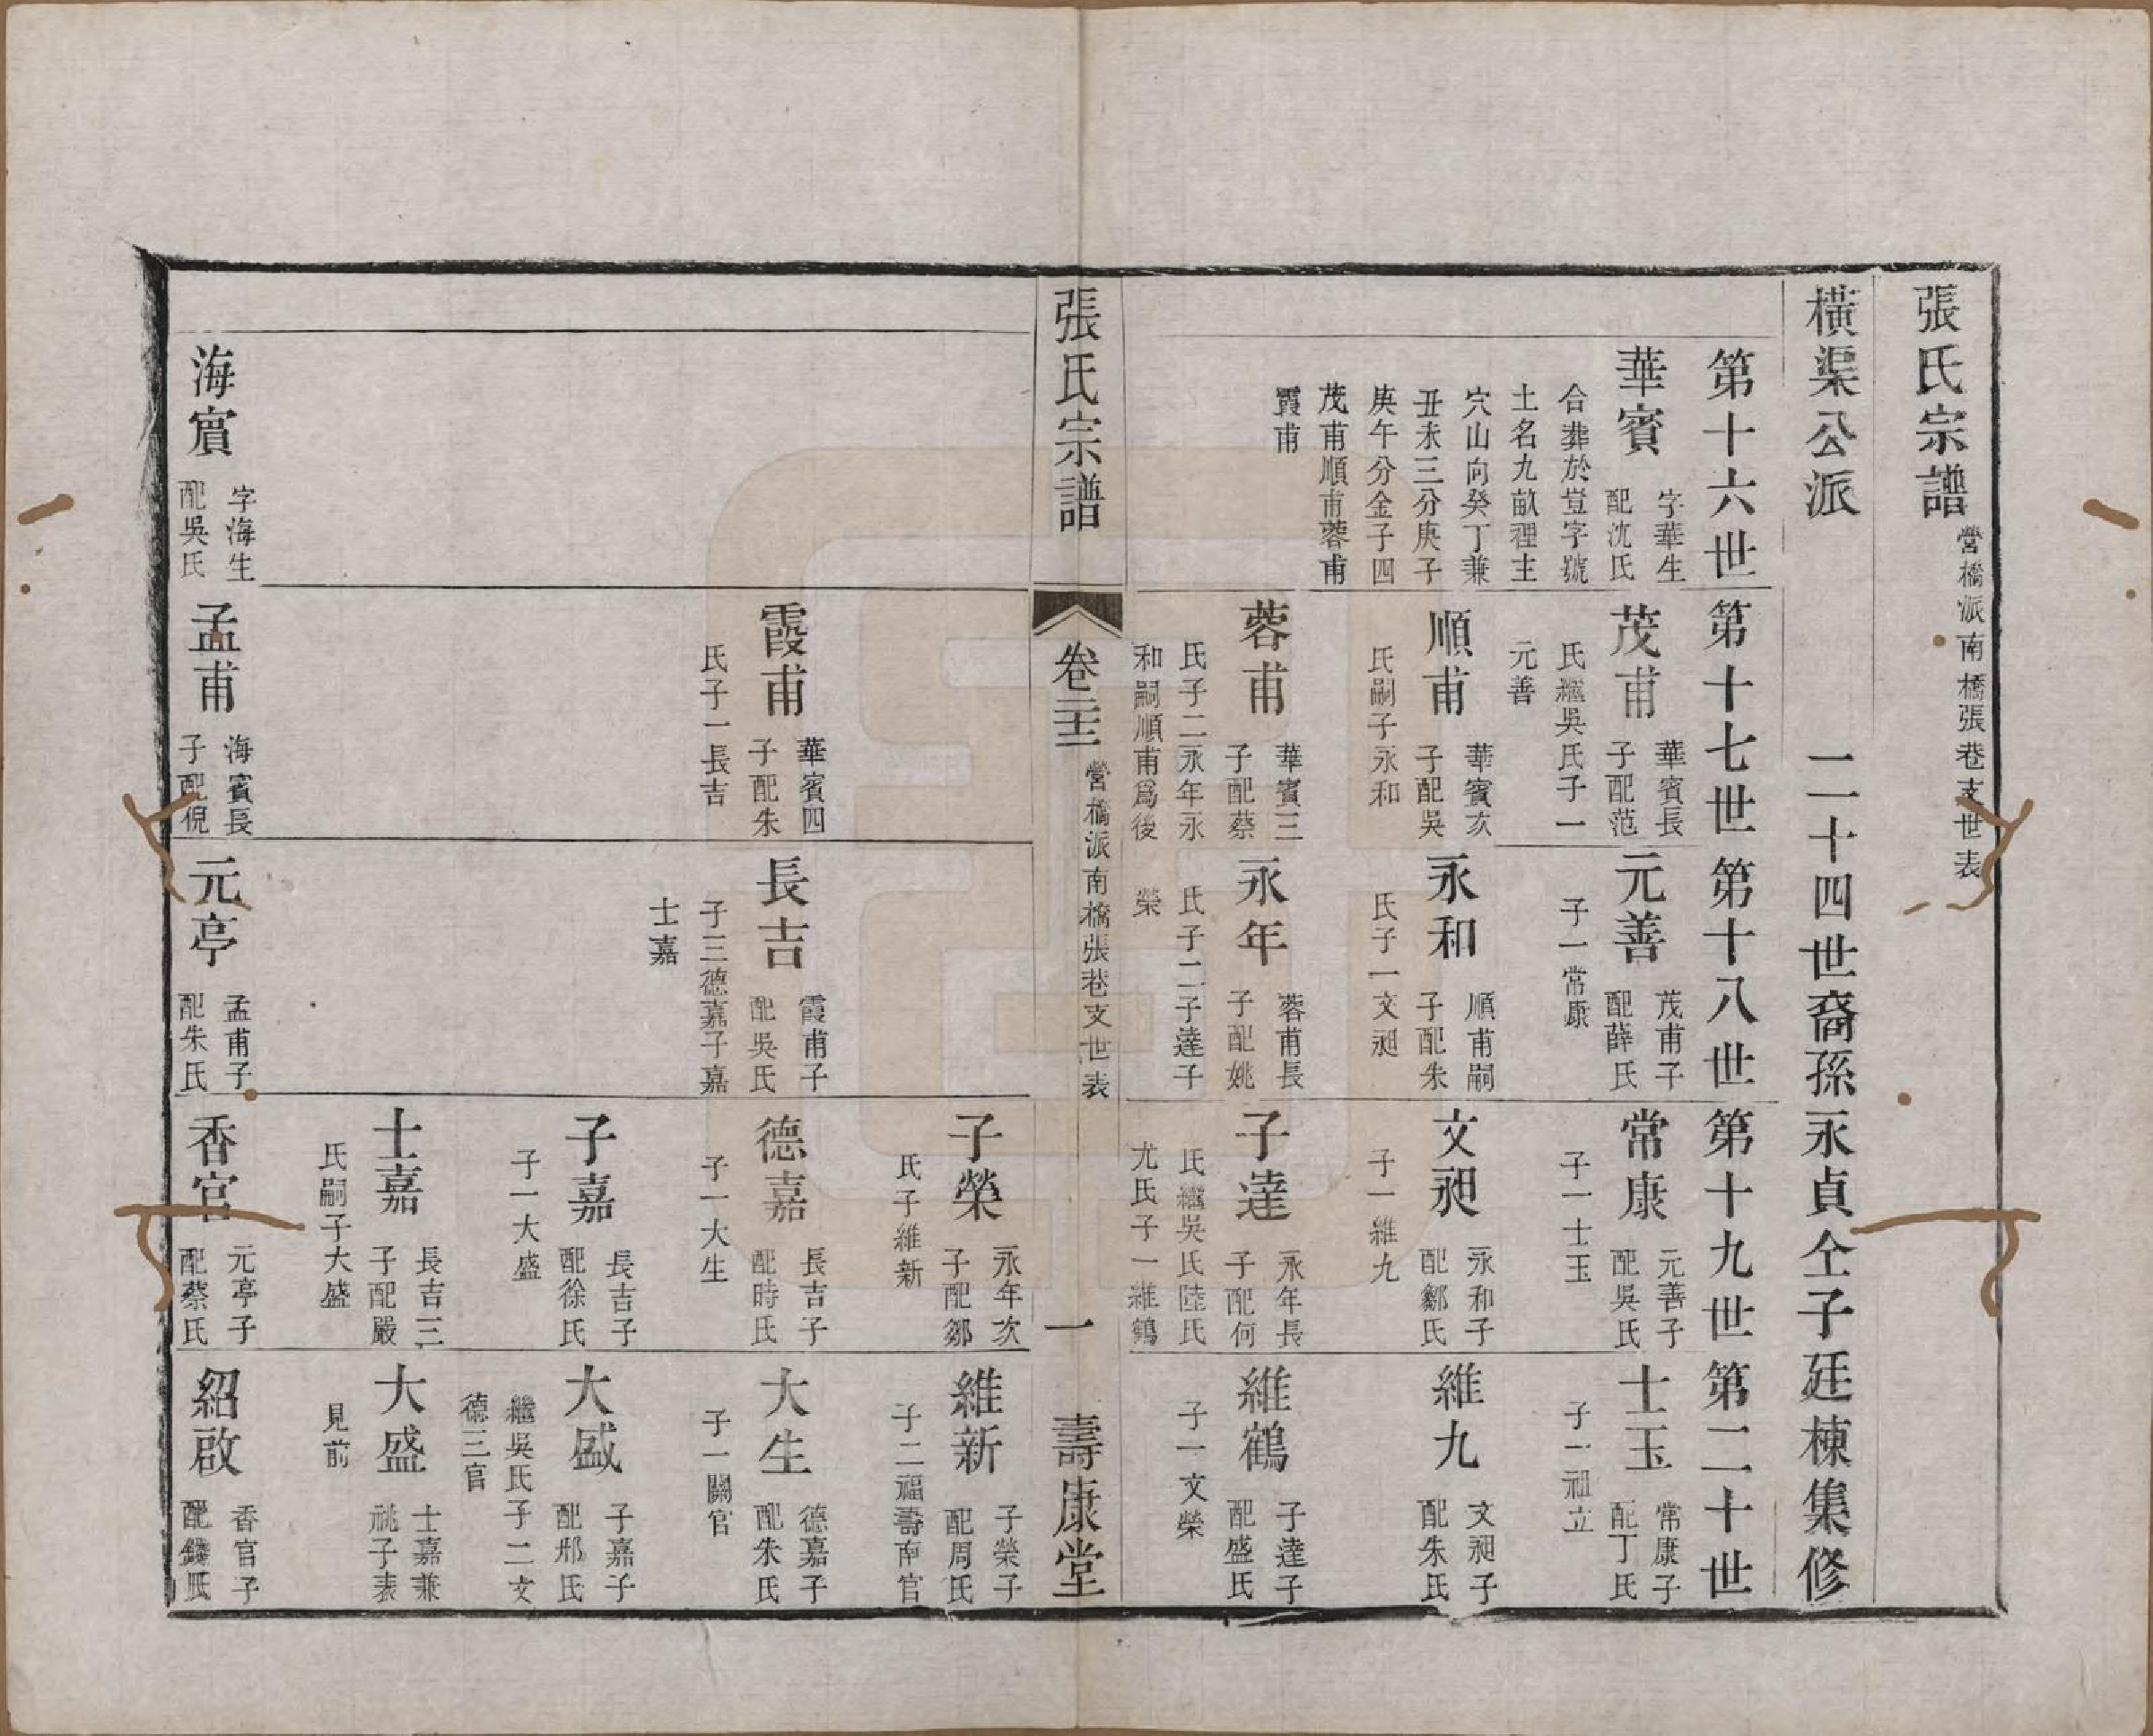 張氏宗譜 營橋派南橋張巷支世表
橫渠公派 二十四世裔孫永貞仝子廷棟集修
第十六世
第十七世
第十八世
第十九世
第二十世
華賓 字華生
配沈氏
合葬於豈字號
土名九畝裡主
穴山向癸丁兼
丑未三分庚子
庚午分金子四
茂甫順甫蓉甫
霞甫
茂甫 華賓長
子配范
氏繼吳氏子一
元善
元善 茂甫子
配薛氏
子一常康
常康 元善子
配吳氏
子一士玉
士玉 常康子
配丁氏
子一祖立
順甫 華賓次
子配吳
氏嗣子永和
永和 順甫嗣
子配朱
氏子一文昶
文昶 永和子
配鄒氏
子一維九
維九 文昶子
配朱氏
蓉甫 華賓三
子配蔡
氏子二永年永
和嗣順甫爲後
永年 蓉甫長
子配姚
氏子二子達子
榮
子達 永年長
子配何
氏繼吳氏陸氏
尤氏子一維鶴
維鶴 子達子
配盛氏
子一文榮
張氏宗譜 卷二十三 營橋派南橋張巷支世表 一 壽康堂
子榮 永年次
子配鄒
氏子維新
維新 子榮子
配周氏
子二福壽南官
霞甫 華賓四
子配朱
氏子一長吉
長吉 霞甫子
配吳氏
子三德嘉子嘉
士嘉
德嘉 長吉子
配時氏
子一大生
大生 德嘉子
配朱氏
子一關官
子嘉 長吉子
配徐氏
子一大盛
大盛 子嘉子
配邢氏
繼吳氏子二文
德三官
士嘉 長吉三
子配嚴
氏嗣子大盛
大盛 士嘉兼
祧子表
見前
海賓 字海生
配吳氏
孟甫 海賓長
子配倪
元亭 孟甫子
配朱氏
香官 元亭子
配蔡氏
紹啟 香官子
配錢氏